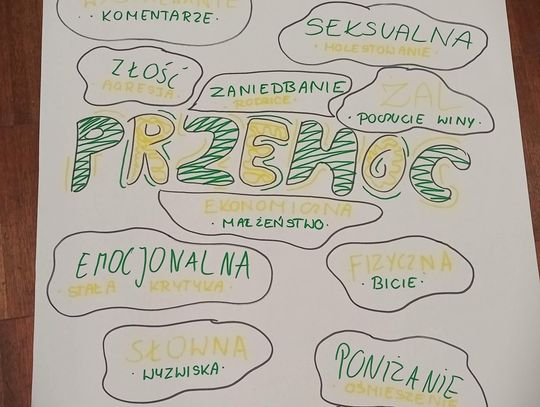 KOMENTARZE
SEKSUALNA
· MOLESTOWANIE ·
ZŁOŚĆ
AGRESJA
ZANIEDBANIE
· RODZICE ·
ŻAL
POCZUCIE WINY
PRZEMOC
EKONOMICZNA
· MAŁŻEŃSTWO ·
EMOCJONALNA
· STAŁA KRYTYKA ·
FIZYCZNA
· BICIE ·
SŁOWNA
· WYZWISKA ·
PONIŻANIE
· OŚMIESZENIE